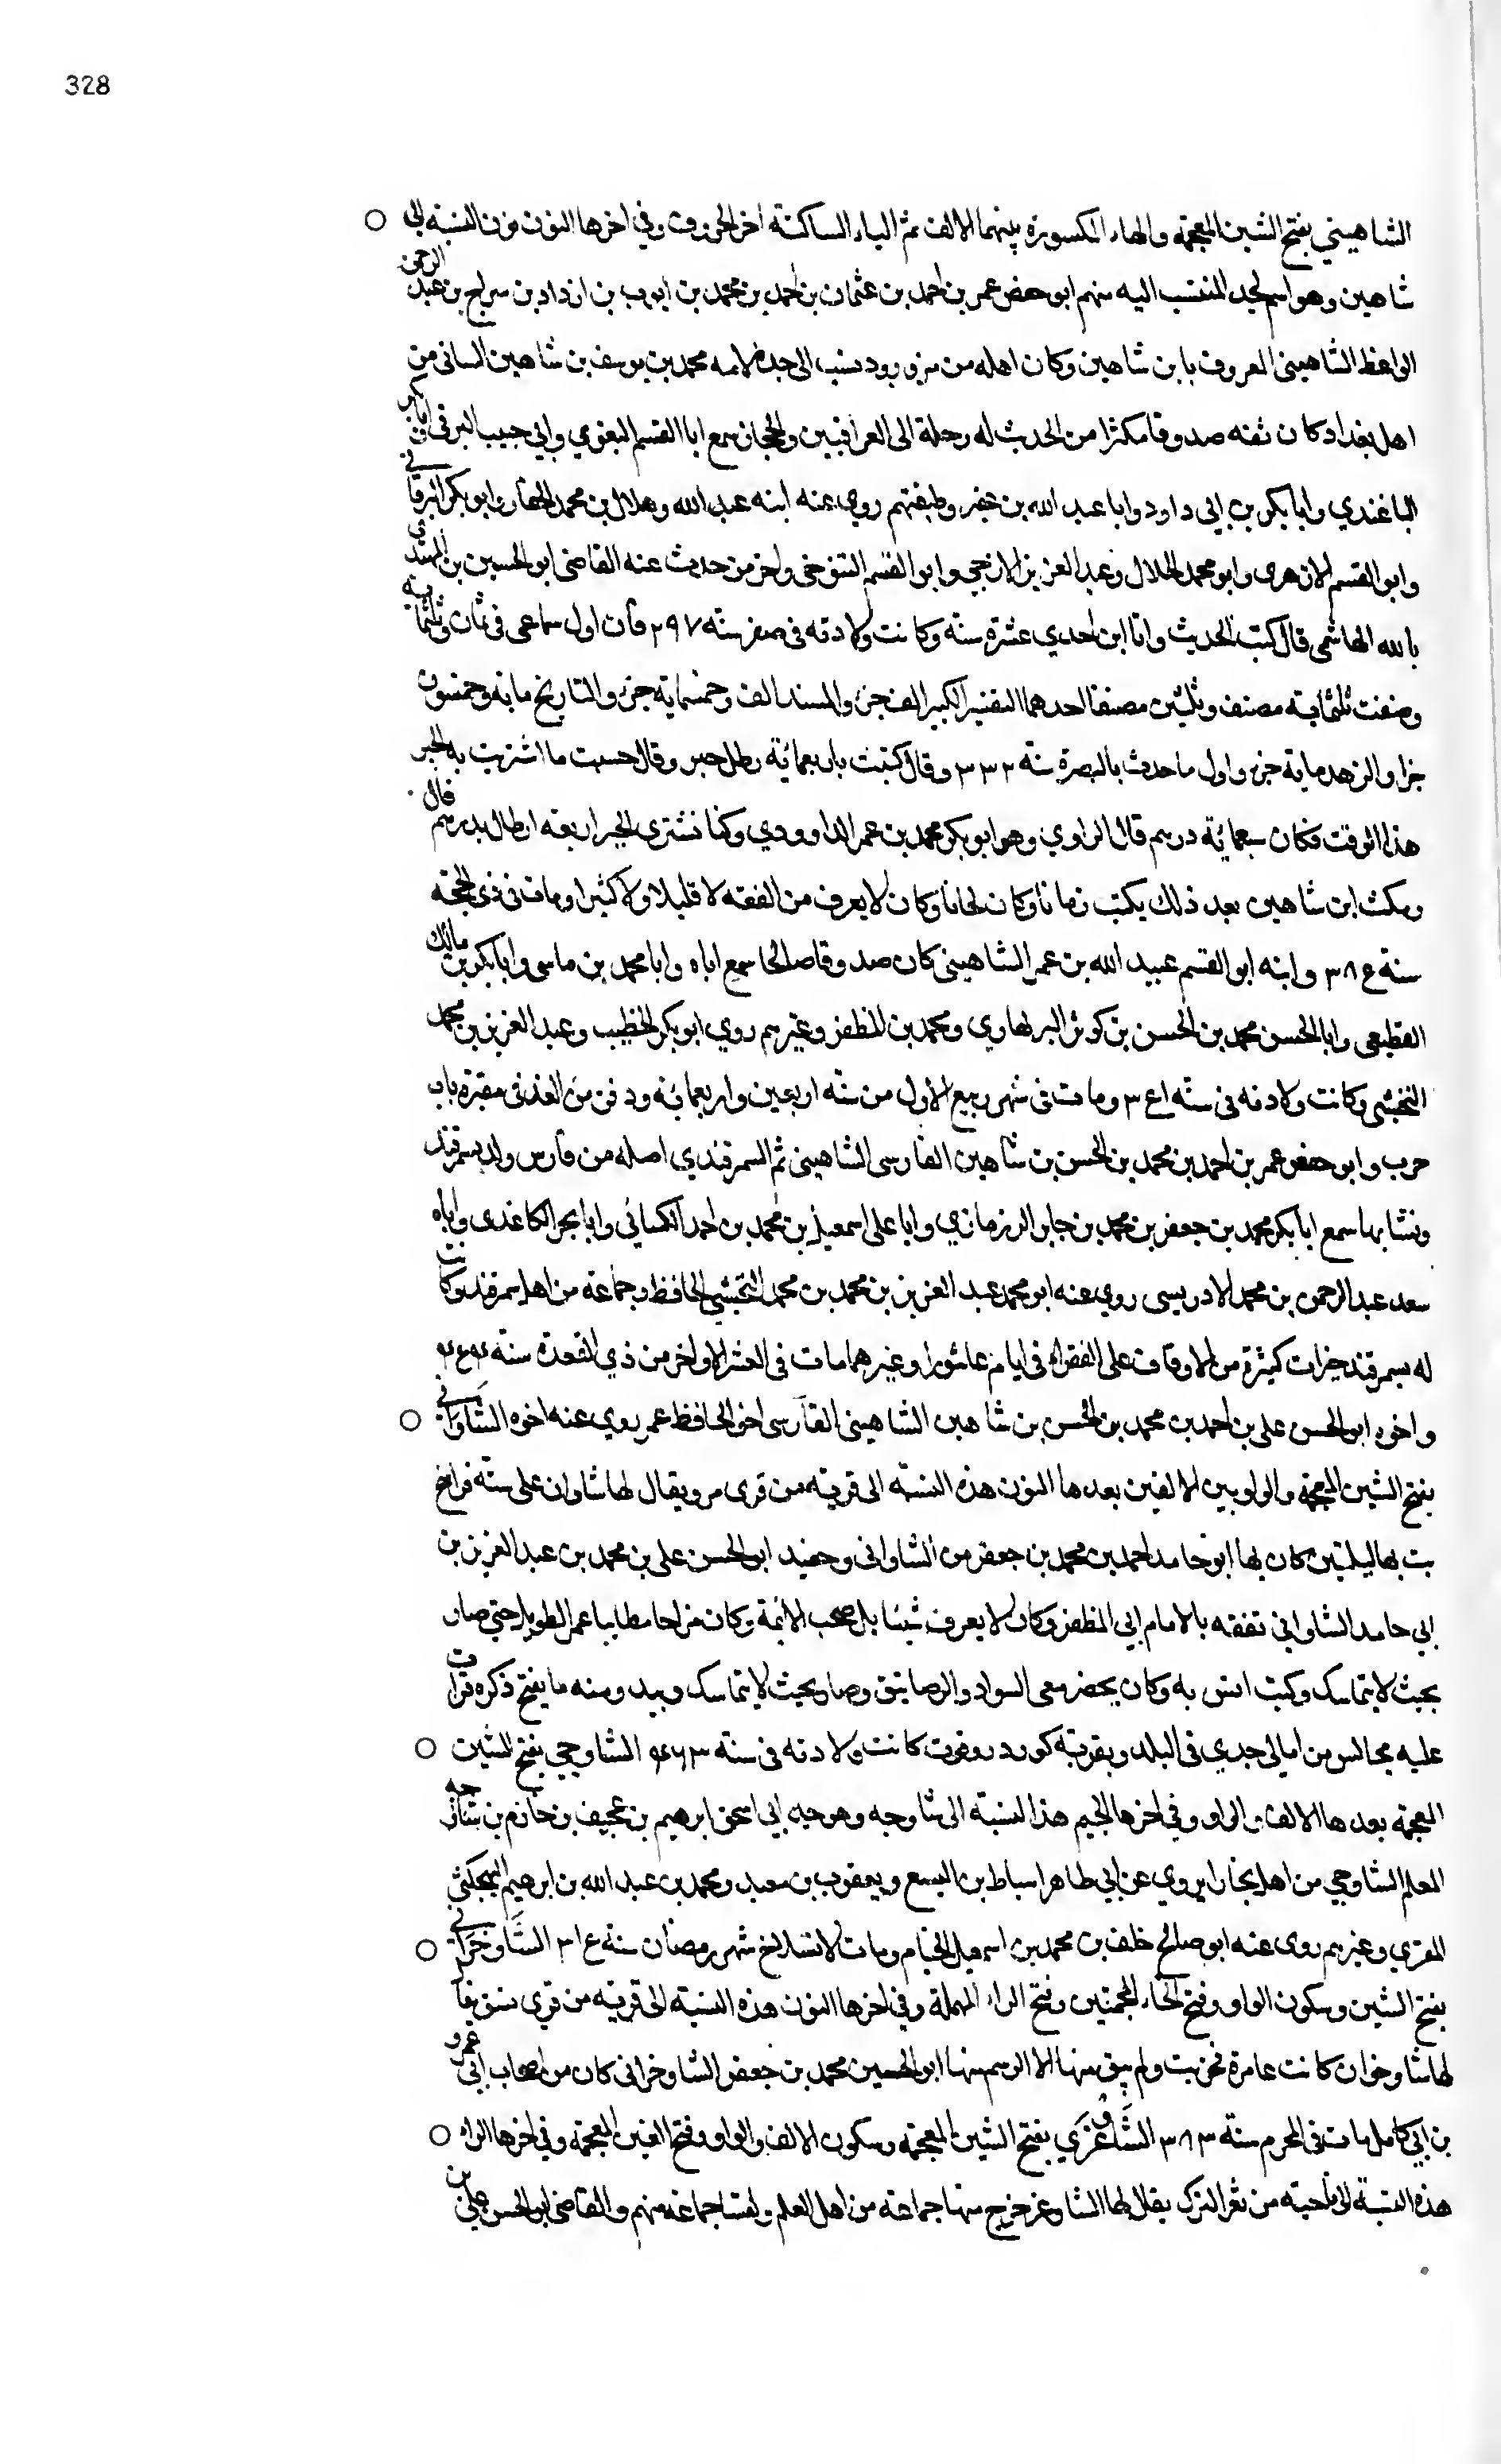 328
الشاهيني بفتح الشين المعجمة والهاء المكسورة بينهما الالف ثم الياء الساكنة اخر الحروف وفي اخرها النون هذه النسبة الى ○
شاهين وهو اسم لجد المنتسب اليه منهم ابو حفص عمر بن احمد بن عثمان بن احمد بن محمد بن ايوب بن ازداد بن سراج بن عبد الرحمن
الواعظ الشاهيني المعروف بابن شاهين وكان اهله من مرو رود نسب الى جده لامه محمد بن يوسف بن شاهين الساني من
اهل بغداد كان ثقه صدوقا مكثرا من الحديث له رحلة الى العراقيين والحجاز سمع ابا القسم البغوي وابي حبيب البرقي وابا بكر
الباغندي وابا بكر بن ابي داود وابا عبد الله بن عفير وطبقتهم روى عنه ابنه عبد الله وهلال بن محمد الحفار وابو بكر البرقاني
وابو القسم الازهري وابو محمد الخلال وعبد العزيز الازجي وابو القسم التنوخي واخر من حديث عنه القاضي ابو الحسين بن المهتدي
بالله الهاشمي قال كتبت الحديث وانا ابن احدي عشرة سنة وكانت ولادته في صفر سنه ٢٩٧ قان اول سماعي في ثمان وثلثماية
وصنفت ثلثماية مصنف وثلثين مصنفا احدهما التفسير الكبير الف جزء والمسند الف وخمسماية جزء والتاريخ مايه وخمسون
جزا والزهد ماية جزء واول ما حدث بالبصرة سنة ٣٣٢ وقال كتبت باربعمائة رطل حبر وقال حسبت ما اشتريت به الحبر
هذا الوقت فكان سبعمائة درهم قال الراوي وهو ابو بكر محمد بن عمر الداوودي وكنا نشتري الحبر اربعه ارطال بدرهم قال
ومكث ابن شاهين بعد ذلك يكتب زمانا وكان لحانا وكان لا يعرف من الفقه لا قليلا ولا كثيرا ومات في ذي الحجة
سنة ٣٨ع وابنه ابو القسم عبيد الله بن عمر الشاهيني كان صدوقا صالحا سمع اباه وابا محمد بن ماسي وابا بكر بن مالك
القطيعي وابا الحسن محمد بن الحسن بن كوثر البربهاوي ومحمد بن المظفر وغيرهم روي ابو بكر الخطيب وعبد العزيز بن محمد
النخشبي وكانت ولادته في سنة ٣ع١ ومات في شهر ربيع الاول من سنه اربعين واربعمائه ودفن من الغد في مقبرة باب
حرب وابو حفص عمر بن احمد بن محمد بن الحسن بن شاهين الفارسي الشاهيني ثم السمرقندي اصله من فارس ولد بسمرقند
ونشا بها سمع ابا بكر محمد بن جعفر بن محمد بن جابر الرزمازي وابا على اسمعيل بن محمد بن احمد الكسائي وابا بحر الكاغدي واباه
سعد عبد الرحمن بن محمد الادريسي روي عنه ابو محمد عبد العزيز بن محمد بن محمد النخشبي الحافظ وجماعة من اهل سمرقند وكانت
له بسمرقند خيرات كثيرة من الاوقاف على الفقراء في ايام عاشورا وغيرها مات في العشر الاواخر من ذي القعدة سنة
واخوه ابو الحسن علي بن احمد بن محمد بن الحسن بن شاهين الشاهيني الفارسي اخو الحافظ عمر روي عنه اخوه الشَّاوَاني ○
بفتح الشين المعجمة والواو بين الالفين بعدها النون هذه النسبة الى قرية من قرى مرو يقال لها شاوان على ستة فراسخ
بت بها ليلتين كان بها ابو حامد احمد بن محمد بن جعفر من الشاواني وحفيد ابو الحسن علي بن محمد بن عبد العزيز بن
ابي حامد الشاواني تفقه بالامام ابي المظفر وكان لا يعرف شيئا بل صحب الائمة وكان مزاحا مطايبا عمر الطويل حتى صار
بحيث لا يتماسك وكتبت انس به وكان يحضر معي السواد والرصايتق وصار بحيث لا يتماسك وبيد ومنه ما يفتح ذكره قرات
عليه مجالس من امالي جدي في البلد وبقرية كورد روفرت كانت ولادته في سنة الشاوجي بفتح الشين ○
المعجمة بعدها الالف والواو وفي اخرها الجيم هذا النسبة الى شاوجه وهو جد ابي اسحق ابرهيم بن عجيف بن خازم بن شاوجه
المعلم الشاوجي من اهل بخارا يروي عن ابي طاهر اسباط بن اليسع ويعقوب بن معبد ومحمد بن عبد الله بن ابرهيم البمجكثي
المقرئ وغيرهم روى عنه ابو صالح خلف بن محمد بن اسمعيل الخيام ومات لانسلاخ شهر رمضان سنة ٣١ع الشَّاوخَرَاني ○
بفتح الشين وسكون الواو وفتح الخاء المعجمتين وفتح الراء المهملة وفي اخرها النون هذه النسبة الى قرية من قرى نسف يقال
لها شاوخران كانت عامرة فخربت ولم يبق منها الا الرسم منها ابو الحسين محمد بن جعفر الشاوخراني كان من اصحاب ابي عمرو
بن ابي كامل مات في المحرم سنة ٣٨٣ الشَّاوغَزي بفتح الشين المعجمة وسكون الالف والواو وفتح الغين المعجمة وفي اخرها الراء ○
هذه النسبة الى ناحية من ثغر الترك يقال لها الشاوغر خرج منها جماعة من اهل العلم ولقيتا جماعة منهم والقاضي ابو الحسن علي بن